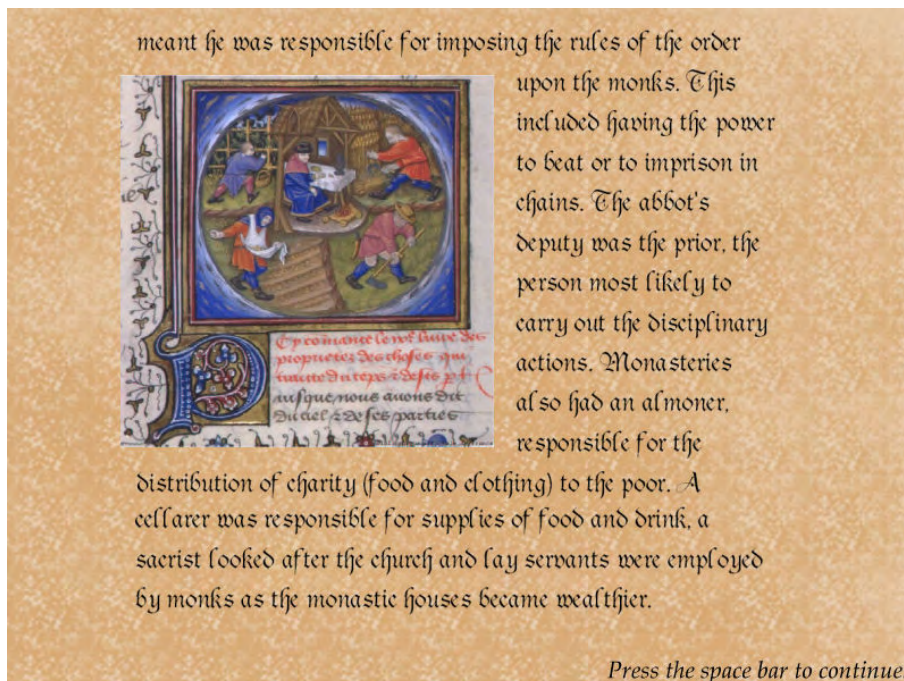 meant he was responsible for imposing the rules of the order
upon the monks. This
included having the power
to beat or to imprison in
chains. The abbot's
deputy was the prior, the
person most likely to
carry out the disciplinary
actions. Monasteries
also had an almoner,
responsible for the
distribution of charity (food and clothing) to the poor. A
cellarer was responsible for supplies of food and drink, a
sacrist looked after the church and lay servants were employed
by monks as the monastic houses became wealthier.
Cy comance le liure des
proprietez des choses qui
traicte du
iusque nous auons dit
du ciel de ses parties
Press the space bar to continue